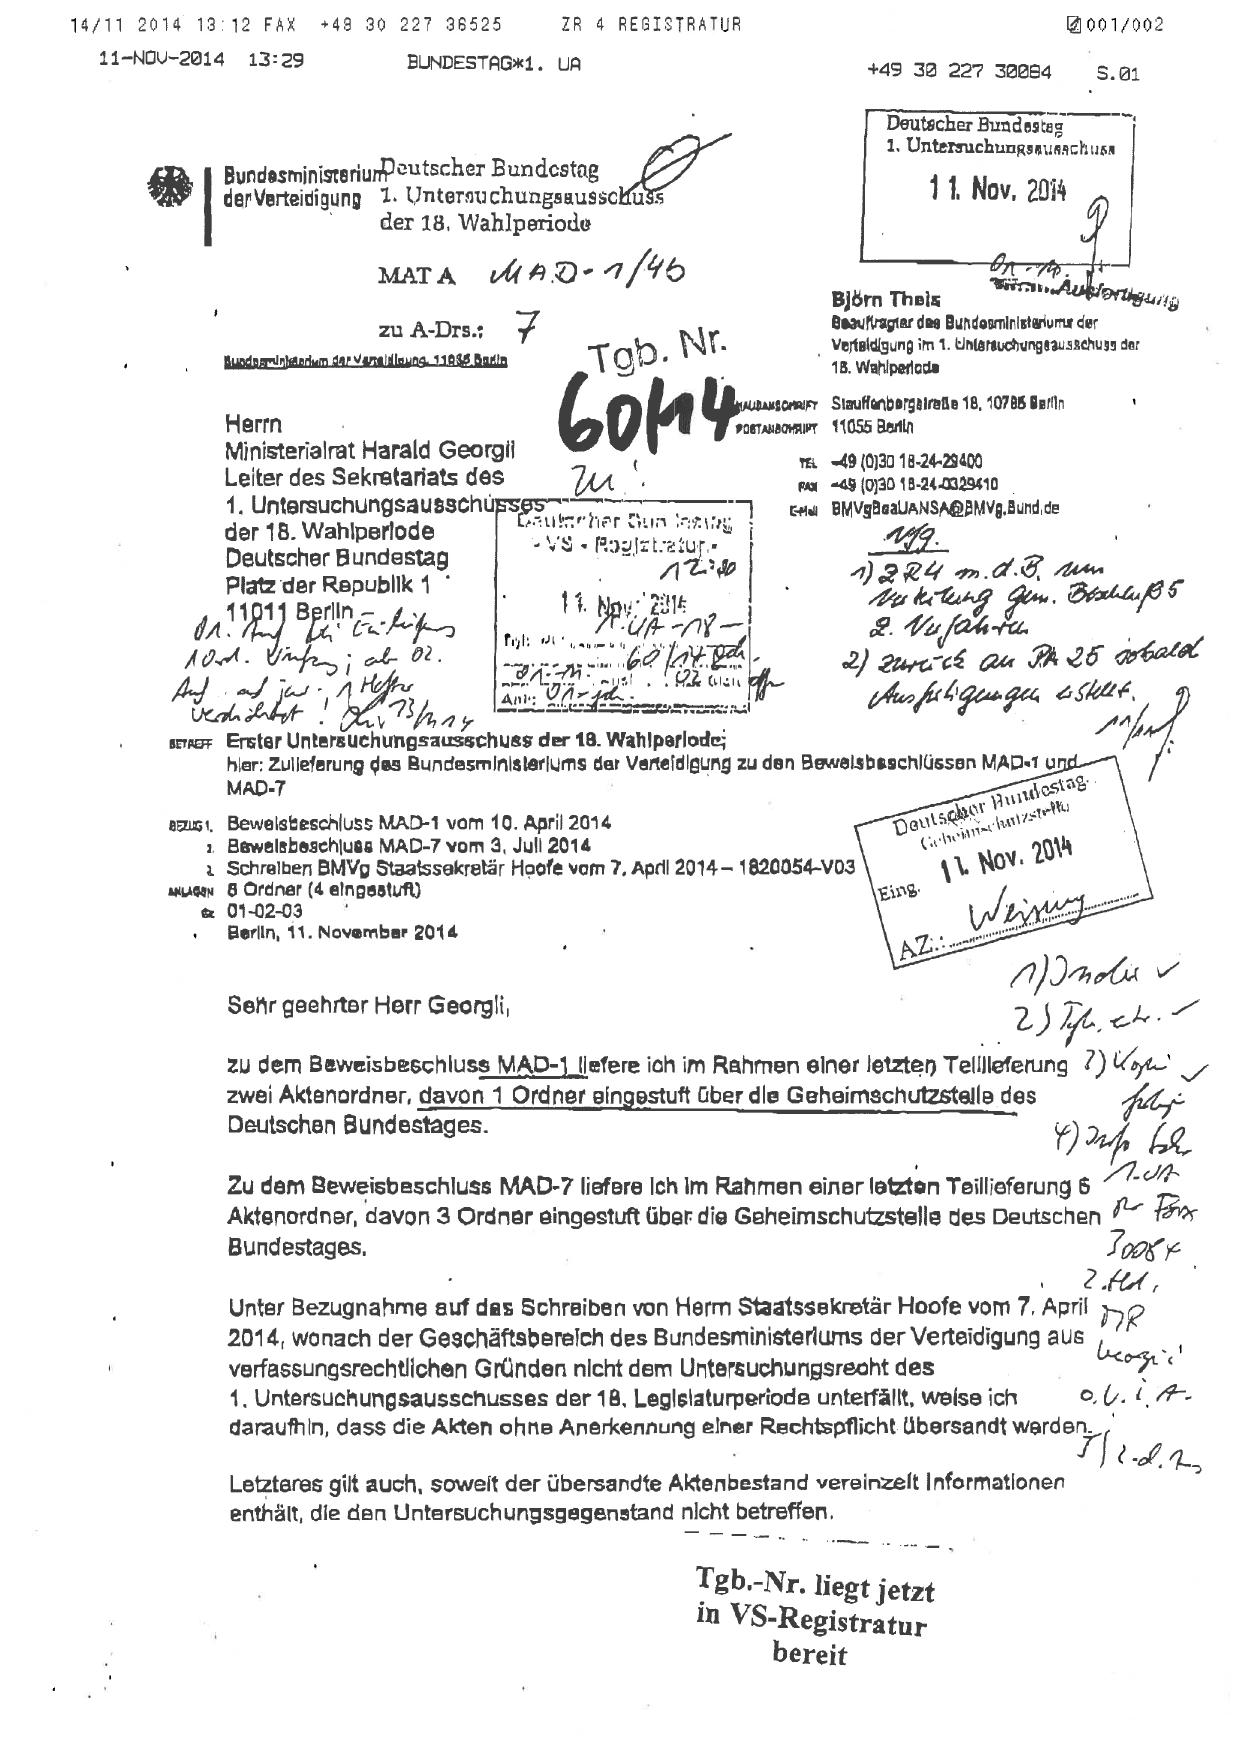 14/11 2014 13:12 FAX +48 30 227 36525 ZR 4 REGISTRATUR 001/002
11-NOV-2014 13:29 BUNDESTAG*1. UA +49 30 227 30084 S.01
Deutscher Bundestag
1. Untersuchungsausschuss
11. Nov. 2014
Bundesministerium
der Verteidigung
Deutscher Bundestag
1. Untersuchungsausschuss
der 18. Wahlperiode
MAT A MAD-1/4b
zu A-Drs.: 7
Björn Theis
Beauftragter des Bundesministeriums der
Verteidigung im 1. Untersuchungsausschuss der
18. Wahlperiode
Bundesministerium der Verteidigung, 11055 Berlin
Tgb. Nr.
60/14
zu:
HAUSANSCHRIFT Stauffenbergstraße 18, 10785 Berlin
POSTANSCHRIFT 11055 Berlin
TEL +49 (0)30 18-24-29400
FAX +49 (0)30 18-24-0329410
E-Mail BMVgBeaUANSA@BMVg.Bund.de
Herrn
Ministerialrat Harald Georgii
Leiter des Sekretariats des
1. Untersuchungsausschusses
der 18. Wahlperiode
Deutscher Bundestag
Platz der Republik 1
11011 Berlin
Deutscher Bundestag
- VS - Registratur -
12:30
11. Nov. 2014
1. UA -18-
60/14
Vfg.
1) ZR4 m.d.B. um
Verteilung gem. Beschluß 5
z. Verfahren
2) zurück an PA 25 sobald
Ausfertigungen erstellt.
BETREFF Erster Untersuchungsausschuss der 18. Wahlperiode;
hier: Zulieferung des Bundesministeriums der Verteidigung zu den Beweisbeschlüssen MAD-1 und
MAD-7
BEZUG 1. Beweisbeschluss MAD-1 vom 10. April 2014
2. Beweisbeschluss MAD-7 vom 3. Juli 2014
3. Schreiben BMVg Staatssekretär Hoofe vom 7. April 2014 – 1820054-V03
ANLAGEN 8 Ordner (4 eingestuft)
Gz 01-02-03
Berlin, 11. November 2014
Deutscher Bundestag
Geheimschutzstelle
Eing. 11. Nov. 2014
AZ.:
Weisung
Sehr geehrter Herr Georgii,
zu dem Beweisbeschluss MAD-1 liefere ich im Rahmen einer letzten Teillieferung
zwei Aktenordner, davon 1 Ordner eingestuft über die Geheimschutzstelle des
Deutschen Bundestages.
Zu dem Beweisbeschluss MAD-7 liefere ich im Rahmen einer letzten Teillieferung 6
Aktenordner, davon 3 Ordner eingestuft über die Geheimschutzstelle des Deutschen
Bundestages.
Unter Bezugnahme auf das Schreiben von Herrn Staatssekretär Hoofe vom 7. April
2014, wonach der Geschäftsbereich des Bundesministeriums der Verteidigung aus
verfassungsrechtlichen Gründen nicht dem Untersuchungsrecht des
1. Untersuchungsausschusses der 18. Legislaturperiode unterfällt, weise ich
daraufhin, dass die Akten ohne Anerkennung einer Rechtspflicht übersandt werden.
Letzteres gilt auch, soweit der übersandte Aktenbestand vereinzelt Informationen
enthält, die den Untersuchungsgegenstand nicht betreffen.
1.UA
30084
z.Hd.
MR
Georgii
o.V.i.A.
Tgb.-Nr. liegt jetzt
in VS-Registratur
bereit